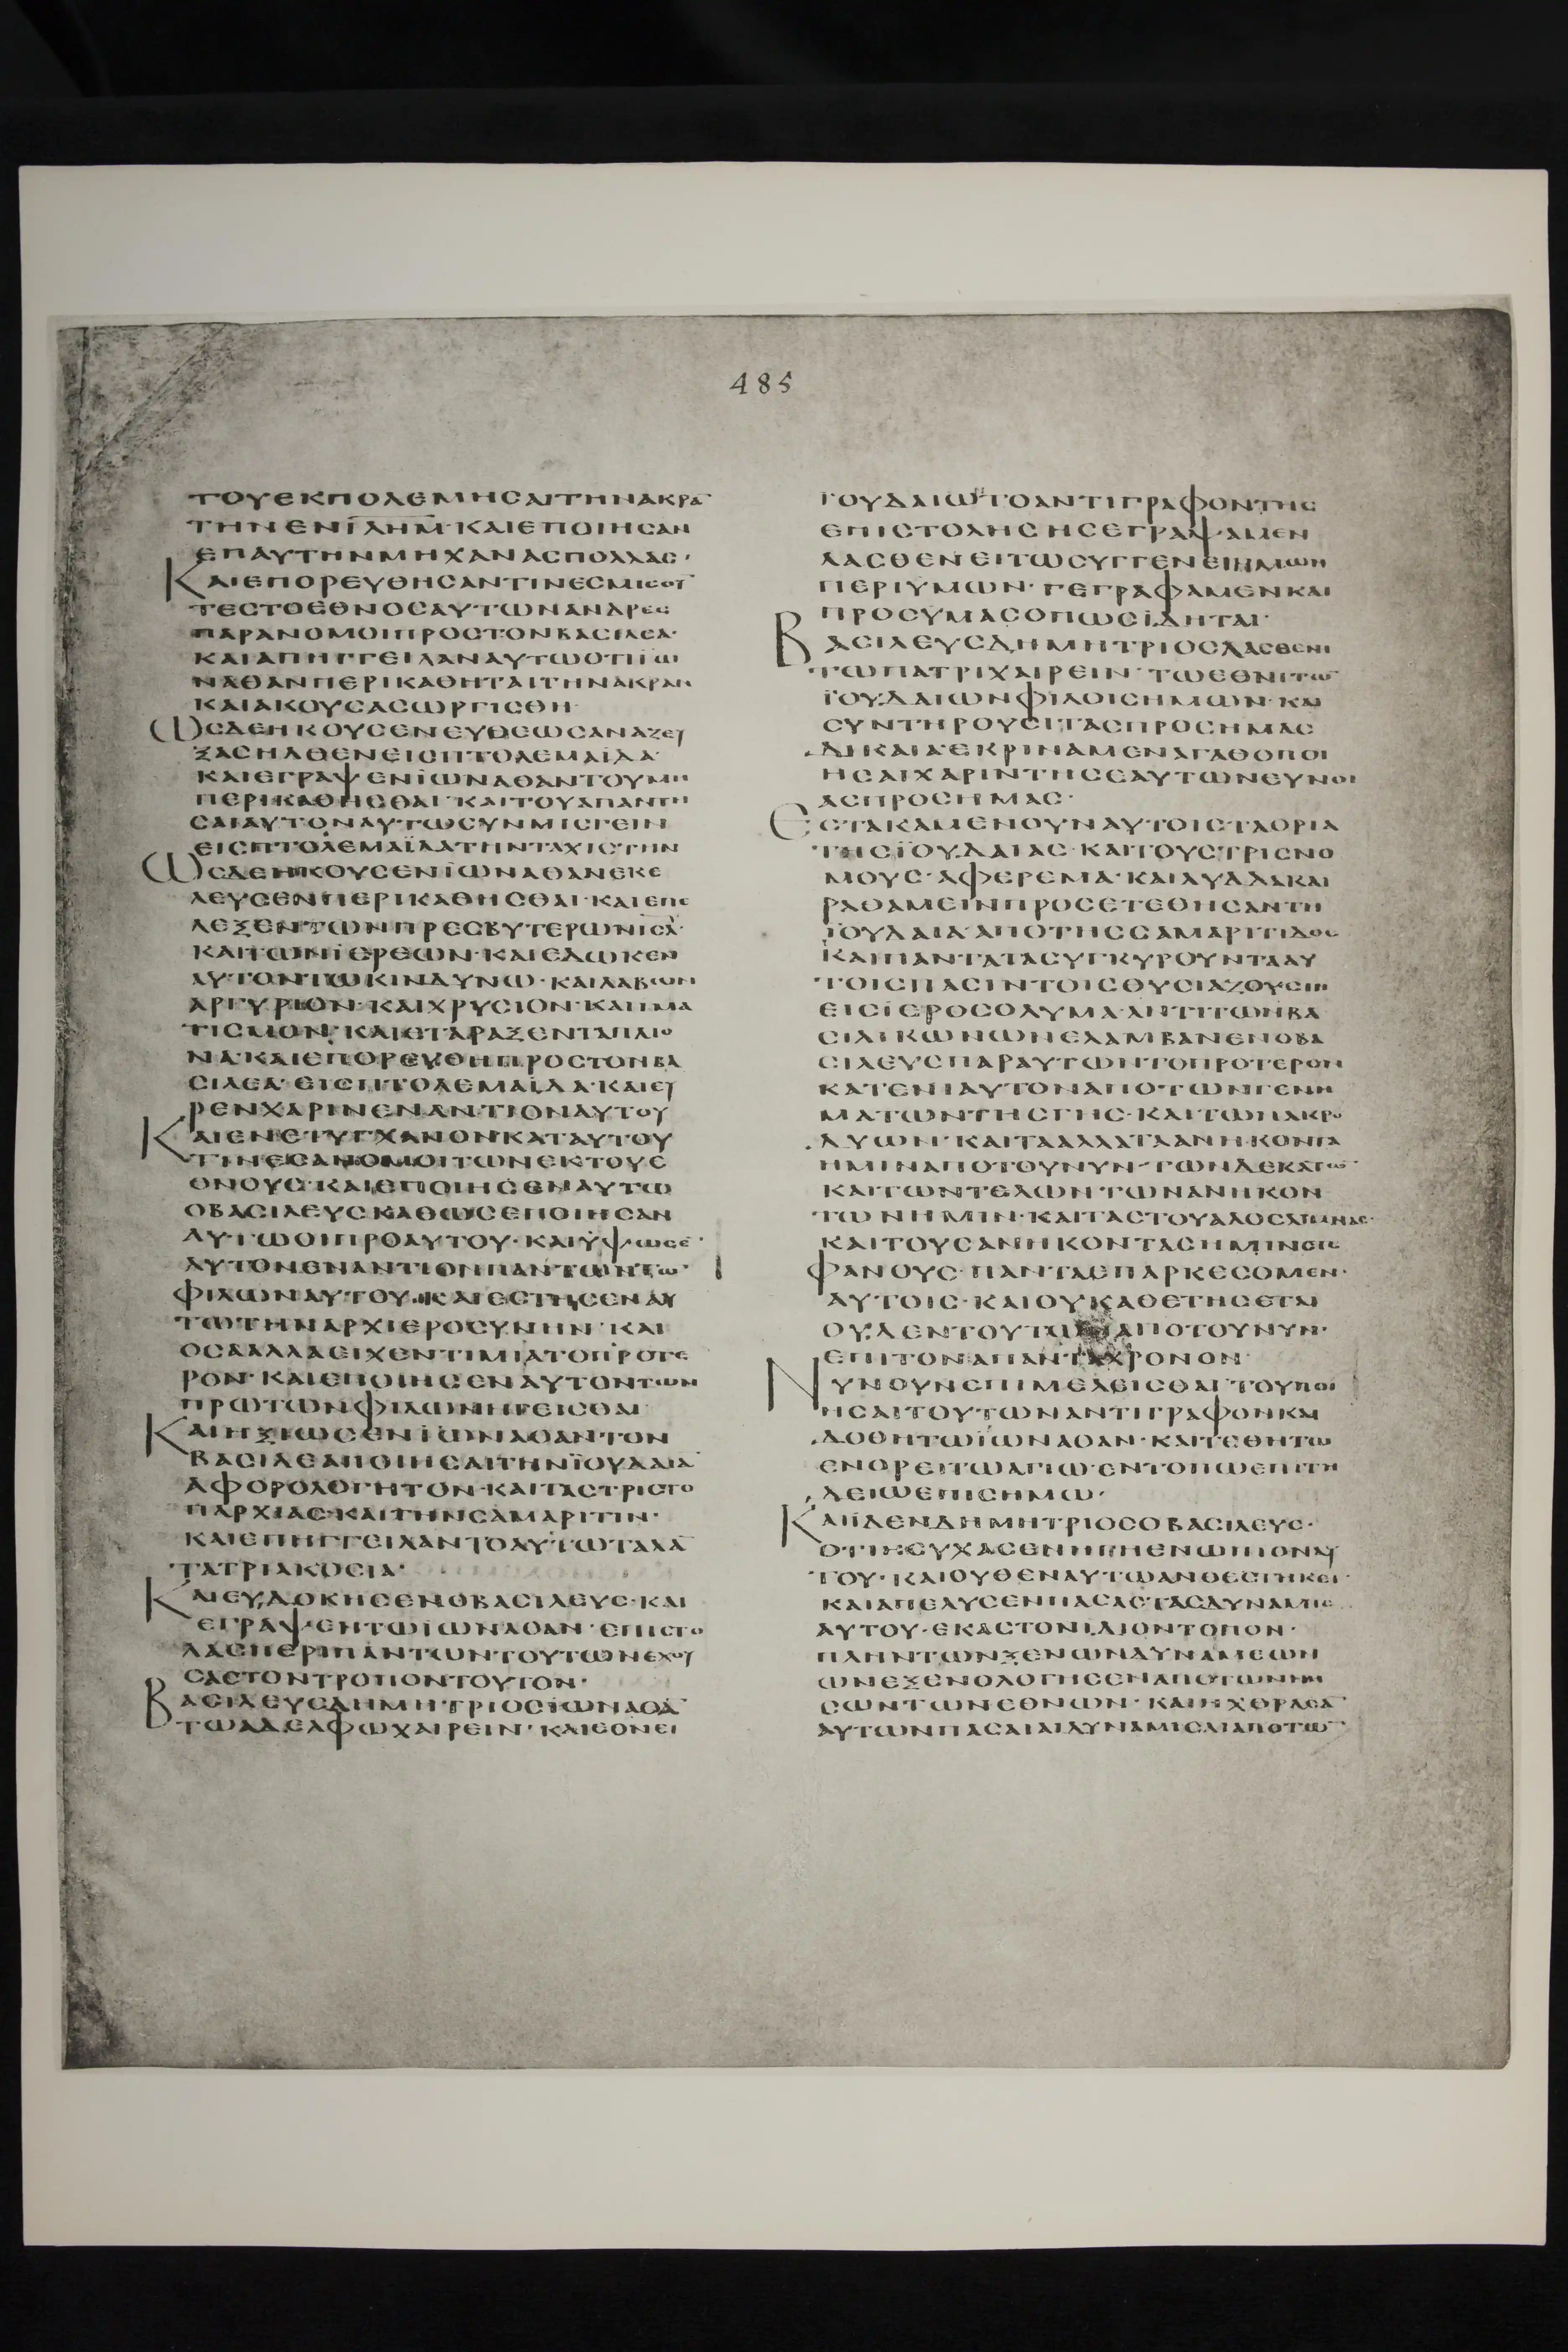 485
ΤΟΥΕΚΠΟΛΕΜΗCΑΙΤΗΝΑΚΡΑ̅
ΤΗΝΕΝΙ̅Λ̅Η̅Μ̅·ΚΑΙΕΠΟΙΗCΑΝ
ΕΠΑΥΤΗΝΜΗΧΑΝΑCΠΟΛΛΑC·
ΚΑΙΕΠΟΡΕΥΘΗCΑΝΤΙΝΕCΜΙCΟΥ̅
ΤΕCΤΟΕΘΝΟCΑΥΤΩΝΑΝΔΡΕC
ΠΑΡΑΝΟΜΟΙΠΡΟCΤΟΝΒΑCΙΛΕΑ·
ΚΑΙΑΠΗΓΓΕΙΛΑΝΑΥΤΩΟΤΙΪΩ
ΝΑΘΑΝΠΕΡΙΚΑΘΗΤΑΙΤΗΝΑΚΡΑΝ
ΚΑΙΑΚΟΥCΑCΩΡΓΙCΘΗ·
ΩCΔΕΗΚΟΥCΕΝΕΥΘΕΩCΑΝΑΖΕΥ
ΞΑCΗΛΘΕΝΕΙCΠΤΟΛΕΜΑΪΔΑ·
ΚΑΙΕΓΡΑΨΕΝΪΩΝΑΘΑΝΤΟΥΜΗ
ΠΕΡΙΚΑΘΗCΘΑΙ·ΚΑΙΤΟΥΑΠΑΝΤΗ
CΑΙΑΥΤΟΝΑΥΤΩCΥΝΜΙCΓΕΙΝ
ΕΙCΠΤΟΛΕΜΑΪΔΑΤΗΝΤΑΧΙCΤΗΝ
ΩCΔΕΗΚΟΥCΕΝΪΩΝΑΘΑΝΕΚΕ
ΛΕΥCΕΝΠΕΡΙΚΑΘΗCΘΑΙ·ΚΑΙΕΠΕ
ΛΕΞΕΝΤΩΝΠΡΕCΒΥΤΕΡΩΝΙ̅C̅Λ̅·
ΚΑΙΤΩΝΪΕΡΕΩΝ·ΚΑΙΕΔΩΚΕΝ
ΑΥΤΟΝΤΩΚΙΝΔΥΝΩ·ΚΑΙΛΑΒΩΝ
ΑΡΓΥΡΙΟΝ·ΚΑΙΧΡΥCΙΟΝ·ΚΑΙΙΜΑ
ΤΙCΜΟΝ·ΚΑΙΕΤΑΡΑΞΕΝΤΑΠΛΙΟ
ΝΑ·ΚΑΙΕΠΟΡΕΥΘΗΠΡΟCΤΟΝΒΑ
CΙΛΕΑ·ΕΙCΠΤΟΛΕΜΑΪΔΑ·ΚΑΙΕΥ
ΡΕΝΧΑΡΙΝΕΝΑΝΤΙΟΝΑΥΤΟΥ
ΚΑΙΕΝΕΤΥΓΧΑΝΟΝΚΑΤΑΥΤΟΥ
ΤΙΝΕCΑΝΟΜΟΙΤΩΝΕΚΤΟΥΕ
ΘΝΟΥC·ΚΑΙΕΠΟΙΗCΕΝΑΥΤΩ
ΟΒΑCΙΛΕΥCΚΑΘΩCΕΠΟΙΗCΑΝ
ΑΥΤΩΟΙΠΡΟΑΥΤΟΥ·ΚΑΙΥΨΩCΕ̅·
ΑΥΤΟΝΕΝΑΝΤΙΟΝΠΑΝΤΩΝΤΩ̅·
ΦΙΛΩΝΑΥΤΟΥ·ΚΑΙΕCΤΗCΕΝΑΥ
ΤΩΤΗΝΑΡΧΙΕΡΟCΥΝΗΝ·ΚΑΙ
ΟCΑΑΛΛΑΕΙΧΕΝΤΙΜΙΑΤΟΠΡΟΤΕ
ΡΟΝ·ΚΑΙΕΠΟΙΗCΕΝΑΥΤΟΝΤΩΝ
ΠΡΩΤΩΝΦΙΛΩΝΗΓΕΙCΘΑΙ·
ΚΑΙΗΞΙΩCΕΝΪΩΝΑΘΑΝΤΟΝ
ΒΑCΙΛΕΑΠΟΙΗCΑΙΤΗΝΪΟΥΔΑΙΑ̅
ΑΦΟΡΟΛΟΓΗΤΟΝ·ΚΑΙΤΑCΤΡΙCΤΟ
ΠΑΡΧΙΑC·ΚΑΙΤΗΝCΑΜΑΡΙΤΙΝ·
ΚΑΙΕΠΗΓΓΕΙΛΑΝΤΟΑΥΤΩΤΑΛΑ̅
ΤΑΤΡΙΑΚΟCΙΑ·
ΚΑΙΕΥΔΟΚΗCΕΝΟΒΑCΙΛΕΥC·ΚΑΙ
ΕΓΡΑΨΕΝΤΩΪΩΝΑΘΑΝ·ΕΠΙCΤΟ
ΛΑCΠΕΡΙΠΑΝΤΩΝΤΟΥΤΩΝΕΧΟΥ
CΑCΤΟΝΤΡΟΠΟΝΤΟΥΤΟΝ·
ΒΑCΙΛΕΥCΔΗΜΗΤΡΙΟCΪΩΝΑΘΑ̅
ΤΩΑΔΕΛΦΩΧΑΙΡΕΙΝ·ΚΑΙΕΘΝΕΙ
ΪΟΥΔΑΙΩ̅ΤΟΑΝΤΙΓΡΑΦΟΝΤΗC
ΕΠΙCΤΟΛΗCΗCΕΓΡΑΨΑΜΕΝ
ΛΑCΘΕΝΕΙΤΩCΥΓΓΕΝΕΙΗΜΩΝ
ΠΕΡΙΥΜΩΝ·ΓΕΓΡΑΦΑΜΕΝΚΑΙ
ΠΡΟCΥΜΑCΟΠΩCΪΔΗΤΑΙ·
ΒΑCΙΛΕΥCΔΗΜΗΤΡΙΟCΛΑCΘΕΝΙ
ΤΩΠΑΤΡΙΧΑΙΡΕΙΝ·ΤΩΕΘΝΙΤΩ̅
ΪΟΥΔΑΙΩΝΦΙΛΟΙCΗΜΩΝ·ΚΑΙ
CΥΝΤΗΡΟΥCΙΤΑCΠΡΟCΗΜΑC
ΔΙΚΑΙΑ·ΕΚΡΙΝΑΜΕΝΑΓΑΘΟΠΟΙ
ΗCΑΙΧΑΡΙΝΤΗCΕΑΥΤΩΝΕΥΝΟΙ
ΑCΠΡΟCΗΜΑC·
ΕCΤΑΚΑΜΕΝΟΥΝΑΥΤΟΙCΤΑΟΡΙΑ
ΤΗCΪΟΥΔΑΙΑC·ΚΑΙΤΟΥCΤΡΙCΝΟ
ΜΟΥC·ΑΦΕΡΕΜΑ·ΚΑΙΛΥΔΔΑΚΑΙ
ΡΑΘΑΜΕΙΝΠΡΟCΕΤΕΘΗCΑΝΤΗ
ΪΟΥΔΑΙΑ·ΑΠΟΤΗCCΑΜΑΡΙΤΙΔΟC
ΚΑΙΠΑΝΤΑΤΑCΥΓΚΥΡΟΥΝΤΑΑΥ
ΤΟΙCΠΑCΙΝΤΟΙCΘΥCΙΑΖΟΥCΙΝ
ΕΙCΪΕΡΟCΟΛΥΜΑ·ΑΝΤΙΤΩΝΒΑ
CΙΛΙΚΩΝΩΝΕΛΑΜΒΑΝΕΝΟΒΑ
CΙΛΕΥCΠΑΡΑΥΤΩΝΤΟΠΡΟΤΕΡΟΝ
ΚΑΤΕΝΙΑΥΤΟΝΑΠΟΤΩΝΓΕΝΗ
ΜΑΤΩΝΤΗCΓΗC·ΚΑΙΤΩΝΑΚΡΟ
ΔΥΩΝ·ΚΑΙΤΑΑΛΛΑΤΑΑΝΗΚΟΝΤΑ
ΗΜΙΝΑΠΟΤΟΥΝΥΝ·ΤΩΝΔΕΚΑΤΩ̅·
ΚΑΙΤΩΝΤΕΛΩΝΤΩΝΑΝΗΚΟΝ
ΤΩΝΗΜΙΝ·ΚΑΙΤΑCΤΟΥΑΛΟCΛΙΜΝΑC·
ΚΑΙΤΟΥCΑΝΗΚΟΝΤΑCΗΜΙΝCΤΕ
ΦΑΝΟΥC·ΠΑΝΤΑΕΠΑΡΚΕCΟΜΕΝ·
ΑΥΤΟΙC·ΚΑΙΟΥΚΑΘΕΤΗCΕΤΑΙ
ΟΥΔΕΝΤΟΥΤΩΝΑΠΟΤΟΥΝΥΝ·
ΕΠΙΤΟΝΑΠΑΝΤΑΧΡΟΝΟΝ·
ΝΥΝΟΥΝΕΠΙΜΕΛΕΙCΘΑΙ·ΤΟΥΠΟΙ
ΗCΑΙΤΟΥΤΩΝΑΝΤΙΓΡΑΦΟΝΚΑΙ
ΔΟΘΗΤΩΪΩΝΑΘΑΝ·ΚΑΙΤΕΘΗΤΩ
ΕΝΟΡΕΙΤΩΑΓΙΩ·ΕΝΤΟΠΩΕΠΙΤΗ
ΔΕΙΩΕΠΙCΗΜΩ·
ΚΑΙΪΔΕΝΔΗΜΗΤΡΙΟCΟΒΑCΙΛΕΥC·
ΟΤΙΗCΥΧΑCΕΝΗΓΗΕΝΩΠΙΟΝΑΥ
ΤΟΥ·ΚΑΙΟΥΘΕΝΑΥΤΩΑΝΘΕCΤΗΚΕΙ·
ΚΑΙΑΠΕΛΥCΕΝΠΑCΑCΤΑCΔΥΝΑΜΙC
ΑΥΤΟΥ·ΕΚΑCΤΟΝΙΔΙΟΝΤΟΠΟΝ·
ΠΛΗΝΤΩΝΞΕΝΩΝΔΥΝΑΜΕΩΝ
ΩΝΕΞΕΝΟΛΟΓΗCΕΝΑΠΟΤΩΝΝΗ
CΩΝΤΩΝΕΘΝΩΝ·ΚΑΙΗΧΘΡΑCΑ̅
ΑΥΤΩΝΠΑCΑΙΑΙΔΥΝΑΜΙCΑΙΑΠΟΤΩ̅